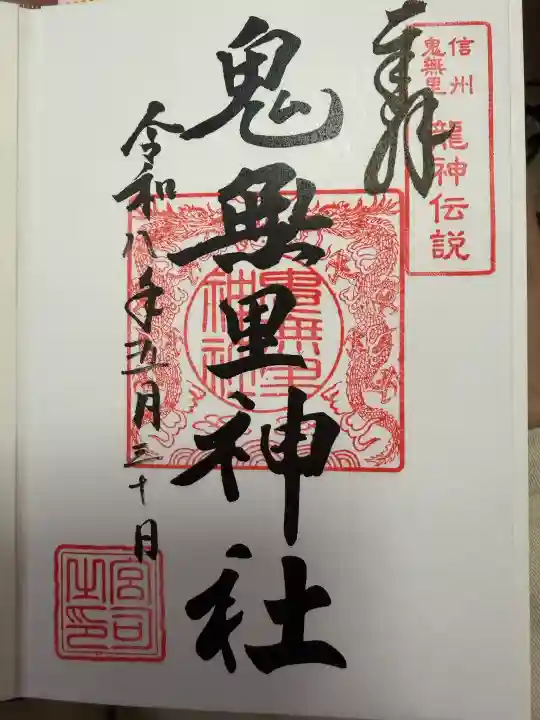 奉拝
信州
鬼無里
龍神伝説
鬼無里神社
鬼無里
神社
令和八年五月三十日
宮司
之印